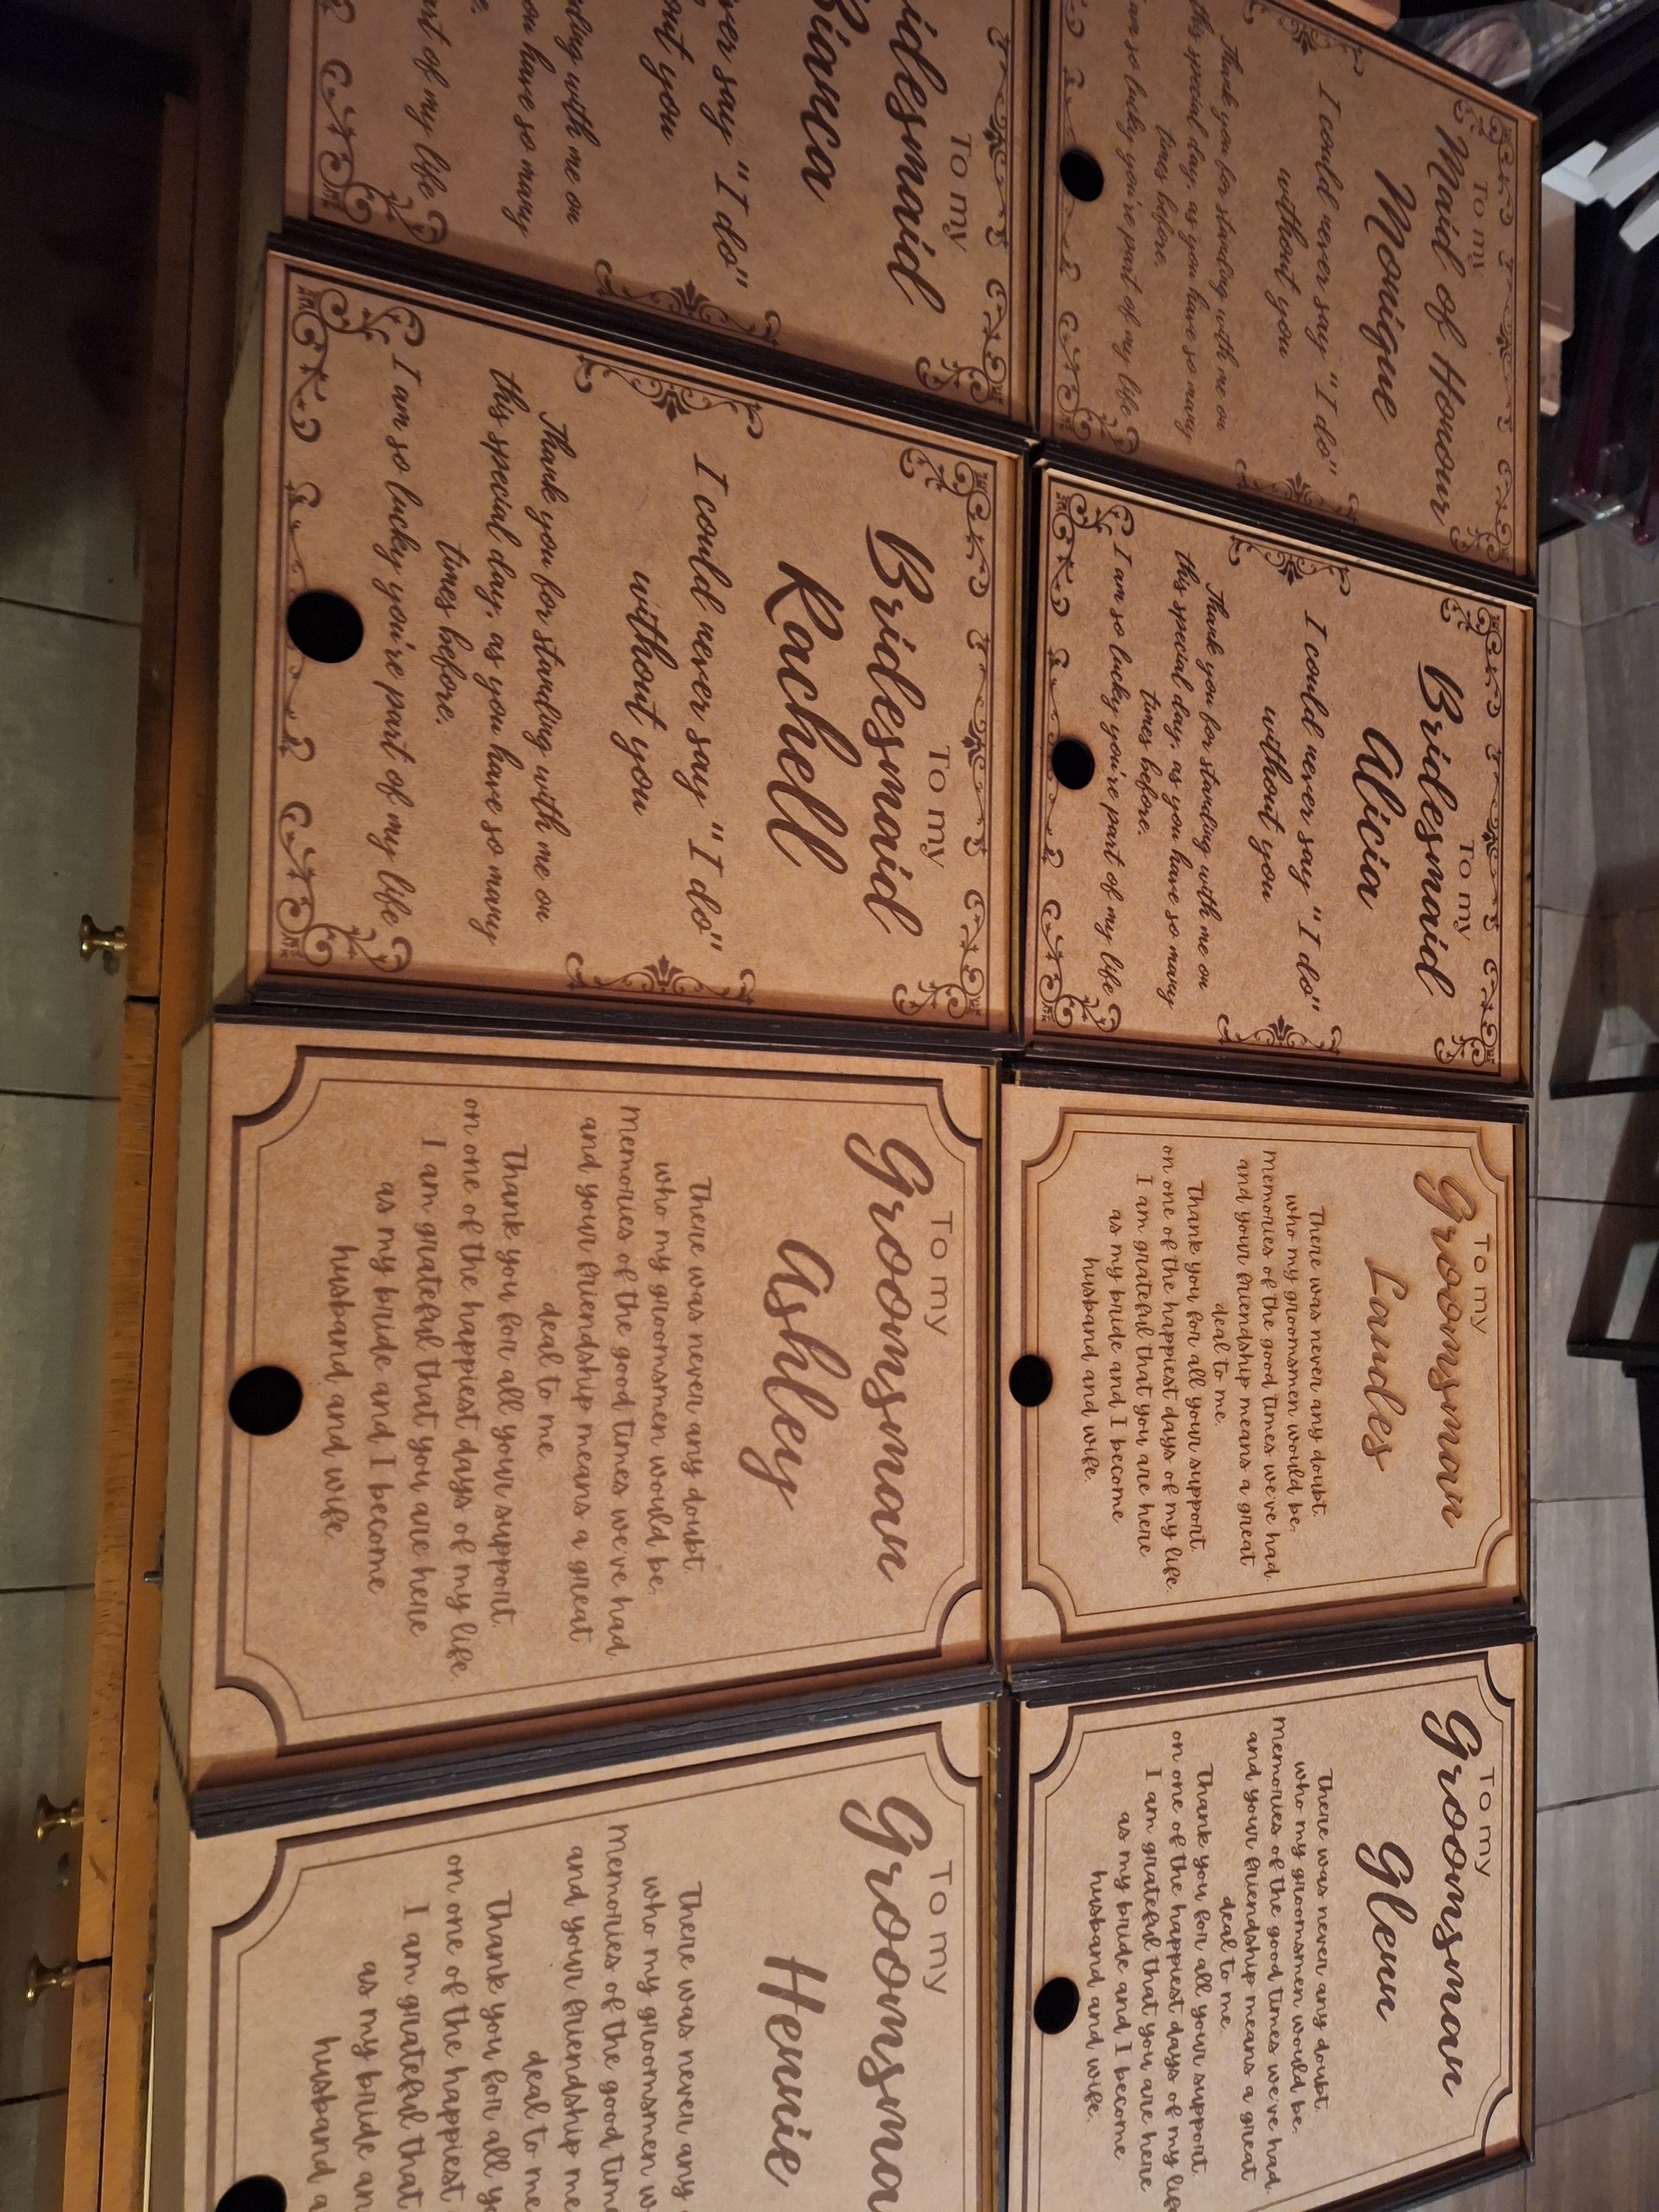 To my
Maid of Honour
Monique
I could never say "I do"
without you
Thank you for standing with me on
this special day, as you have so many
times before.
I am so lucky you're part of my life
To my
Bridesmaid
Alicia
I could never say "I do"
without you
Thank you for standing with me on
this special day, as you have so many
times before.
I am so lucky you're part of my life
To my
Groomsman
Landes
There was never any doubt
who my groomsmen would be.
Memories of the good times we've had
and your friendship means a great
deal to me.
Thank you for all your support
on one of the happiest days of my life.
I am grateful that you are here
as my bride and I become
husband and wife.
To my
Groomsman
Glenn
There was never any doubt
who my groomsmen would be.
Memories of the good times we've had
and your friendship means a great
deal to me.
Thank you for all your support
on one of the happiest days of my life
I am grateful that you are here
as my bride and I become
husband and wife.
To my
Bridesmaid
Bianca
never say "I do"
without you
with me on
you have so many
part of my life
To my
Bridesmaid
Rachell
I could never say "I do"
without you
Thank you for standing with me on
this special day, as you have so many
times before.
I am so lucky you're part of my life
To my
Groomsman
Ashley
There was never any doubt
who my groomsmen would be.
Memories of the good times we've had
and your friendship means a great
deal to me
Thank you for all your support
on one of the happiest days of my life.
I am grateful that you are here
as my bride and I become
husband and wife.
To my
Groomsma
Hennie
There was never any
who my groomsmen w
Memories of the good tim
and your friendship me
deal to me
Thank you for all y
on one of the happiest
I am grateful that
as my bride an
husband a